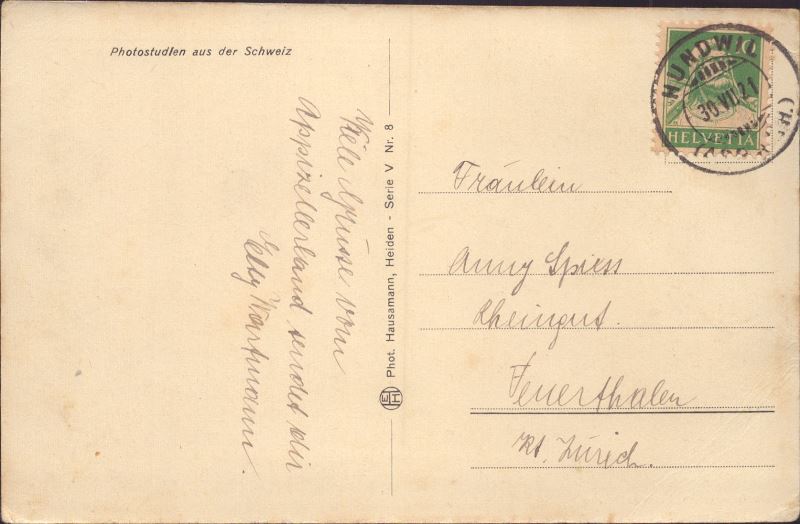 Photostudien aus der Schweiz
Viele Grüsse vom
Appizellerland sendet dir
Elsy Wartmann.
Phot. Hausamann, Heiden - Serie V Nr. 8
EH
HUNDWIL
30.VII.21
HELVETIA
Fräulein
Anny Spiess
Rheingut.
Feuerthalen
Kt. Zürich.